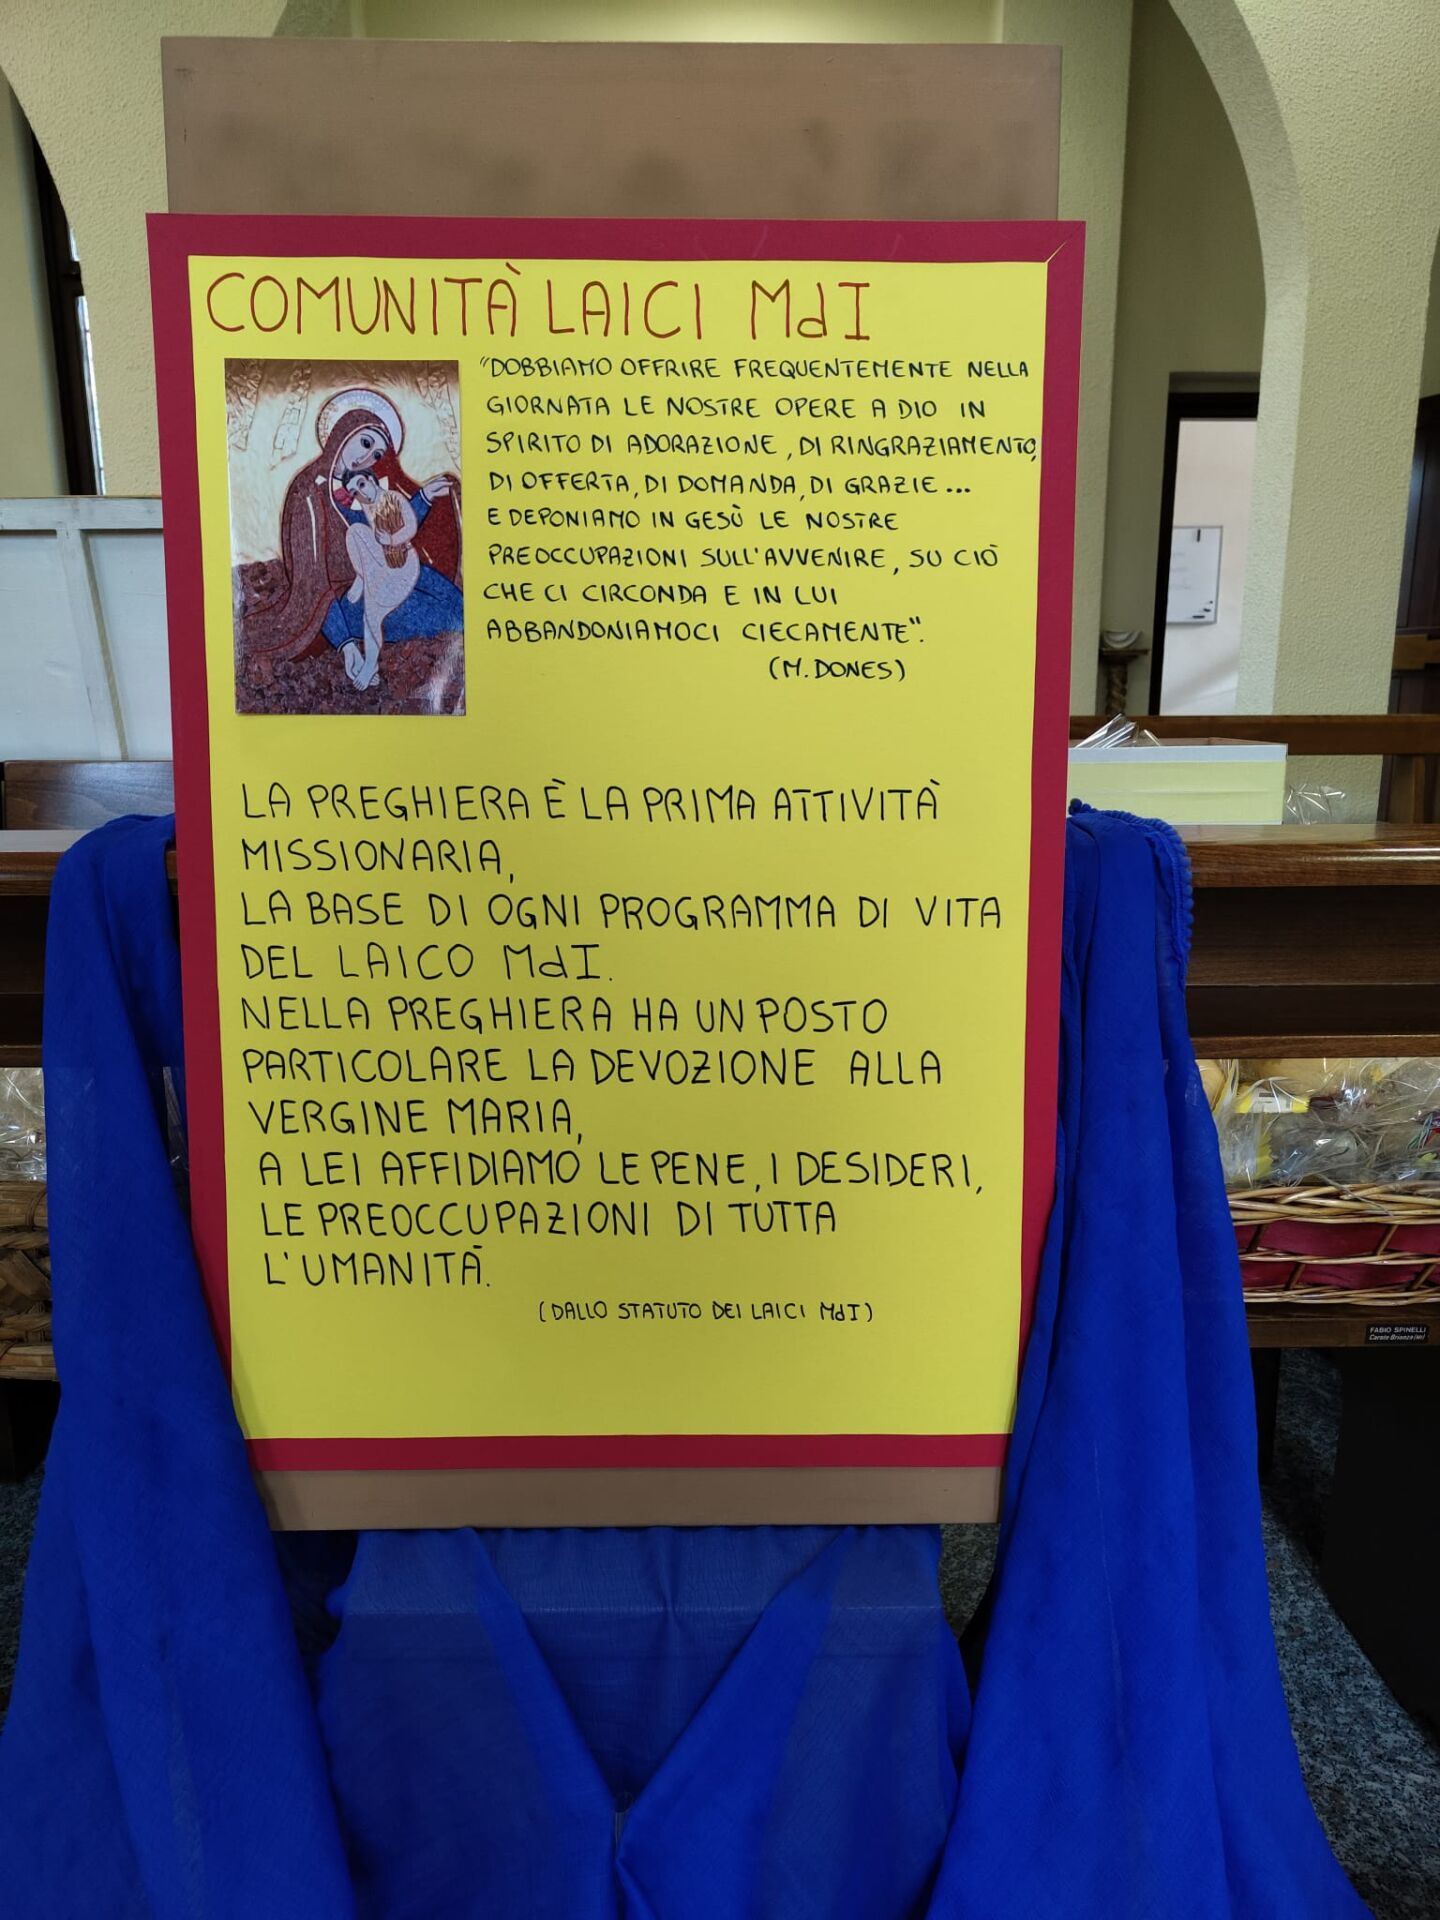 COMUNITÀ LAICI MdI
"DOBBIAMO OFFRIRE FREQUENTEMENTE NELLA
GIORNATA LE NOSTRE OPERE A DIO IN
SPIRITO DI ADORAZIONE, DI RINGRAZIAMENTO,
DI OFFERTA, DI DOMANDA, DI GRAZIE...
E DEPONIAMO IN GESÙ LE NOSTRE
PREOCCUPAZIONI SULL'AVVENIRE, SU CIÒ
CHE CI CIRCONDA E IN LUI
ABBANDONIAMOCI CIECAMENTE".
(M. DONES)
LA PREGHIERA È LA PRIMA ATTIVITÀ
MISSIONARIA,
LA BASE DI OGNI PROGRAMMA DI VITA
DEL LAICO MdI.
NELLA PREGHIERA HA UN POSTO
PARTICOLARE LA DEVOZIONE ALLA
VERGINE MARIA,
A LEI AFFIDIAMO LE PENE, I DESIDERI,
LE PREOCCUPAZIONI DI TUTTA
L'UMANITÀ.
(DALLO STATUTO DEI LAICI MdI)
FABIO SPINELLI
Carate Brianza (MI)